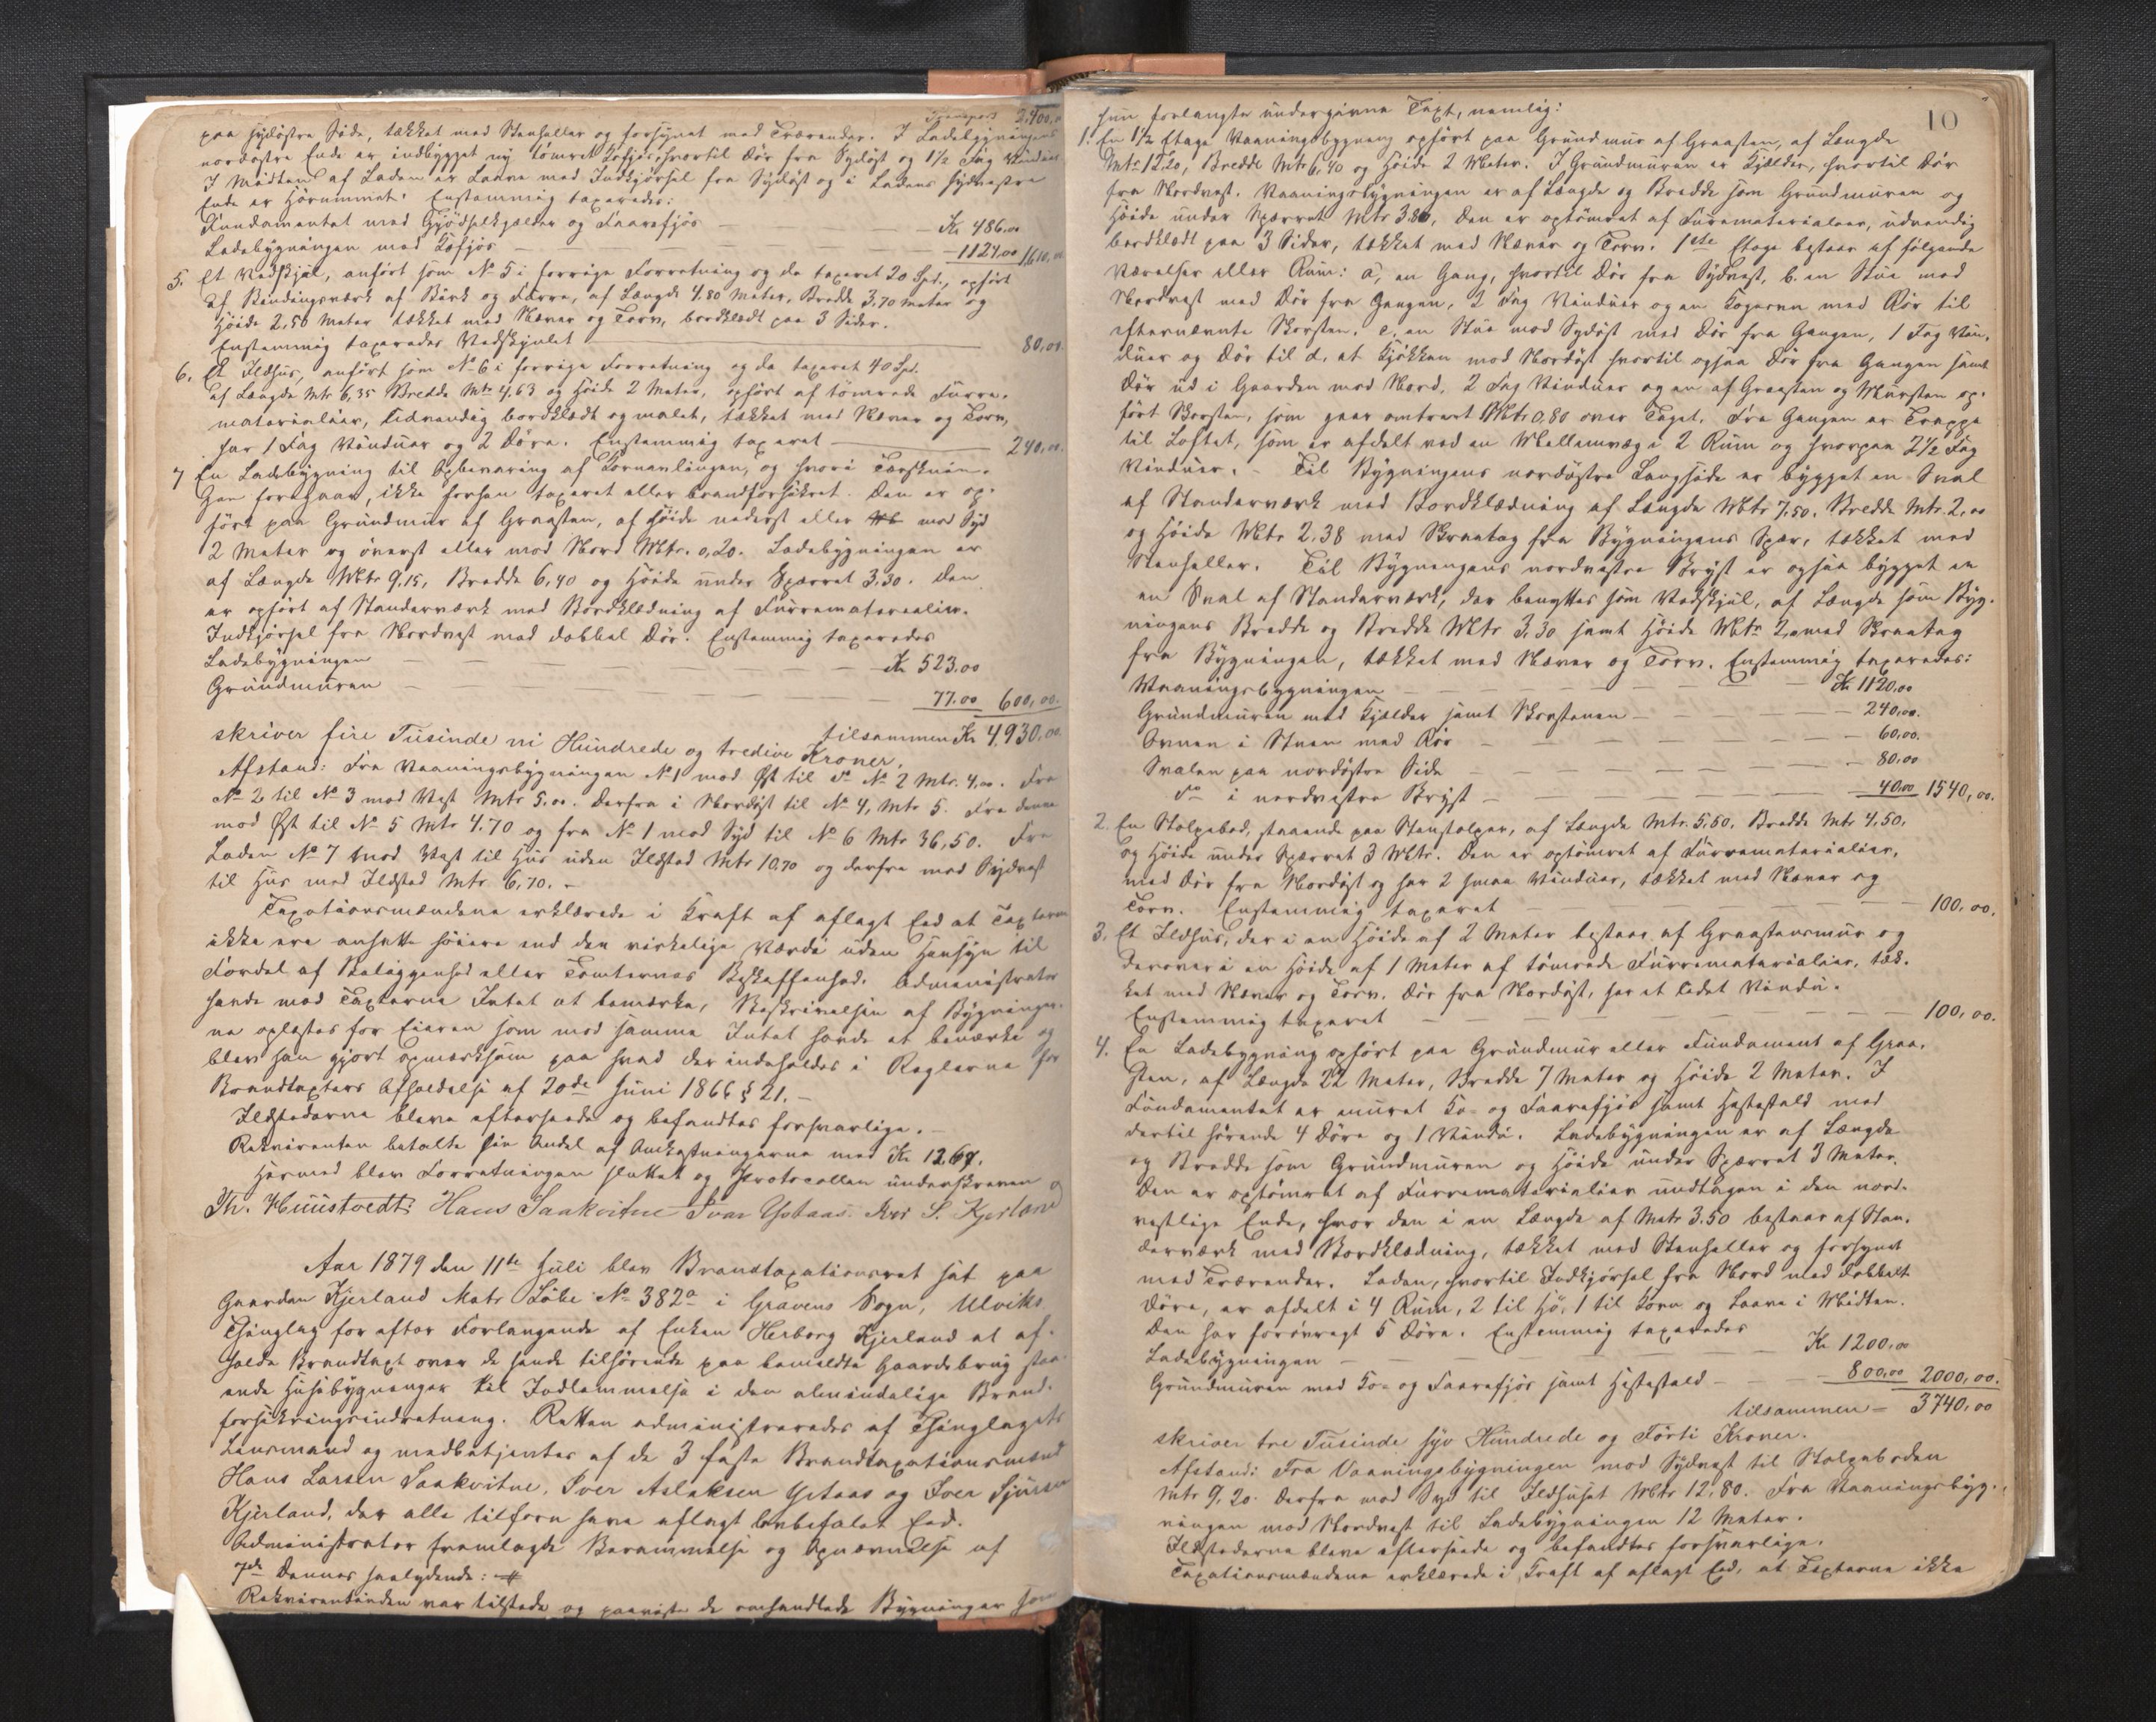 Transport 2,400,00
paa sydøstre Side, tækket med Stenheller og forsynet med Trærender. I Ladebygningens
nordøstre Ende er indbygget ny tømret Kofjøs hvortil Dør fra Sydøst og 1 1/2 Fag Vinduer
I Midten af Laden er Laave med Indkjørsel fra Sydøst og i Ladens sydvestre
Ende er Hørummet. Enstemmig taxeredes:
Fundamentet med Gjødselkjelder og Faarefjøs — Kr 486.00
Ladebygningen med Kofjøs — 1124.00 1,610,00
5. Et Vedskjul, anført som No 5 i forrige Forretning og da taxeret 20 Spd., opført
af Bindingsværk af Birk og Furre, af Længde 4.80 Meter, Bredde 3.70 Meter og
Høide 2,50 Meter tækket med Næver og Torv, bordklædt paa 3 Sider.
Enstemmig taxeredes Vedskjulet — 80,00.
6. Et Ildhus, anført som No 6 i forrige Forretning og da taxeret 40 Spd.
af Længde Mtr 6,35 Bredde Mtr 4,63 og Høide 2 Meter, opført af tømrede Furre-
materialier, udvendig bordklædt og malet, tækket med Næver og Torv,
har 1 Fag Vinduer og 2 Døre. Enstemmig taxeret — 240,00.
7 En Ladebygning til Opbevaring af Kornavlingen, og hvori Tærsknin-
gen foregaar, ikke forhen taxeret eller brandforsikret. Den er op-
ført paa Grundmur af Graasten, af Høide nederst eller mod Syd
2 Meter og øverst eller mod Nord Mtr. 0,20. Ladebygningen er
af Længde Mtr 9,15, Bredde 6,40 og Høide under Sperret 3.30. Den
er opført af Standerværk med Bordklædning af Furrematerialier.
Indkjørsel fra Nordvest med dobbel Dør. Enstemmig taxeredes
Ladebygningen — Kr 523.00
Grundmuren — 77.00 600,00.
tilsammen Kr 4,930,00
skriver fire Tusinde ni Hundrede og tredive Kroner.
Afstand: Fra Vaaningsbygningen No 1 mod Øst til do No 2 Mtr. 4,00. Fra
No 2 til No 3 mod Vest Mtr 5.00. Derfra i Nordøst til No 4, Mtr 5. Fra denne
mod Øst til No 5 Mtr 4.70 og fra No 1 mod Syd til No 6 Mtr 36,50. Fra
Laden No 7 mod Vest til Hus uden Ildsted Mtr 10.70 og derfra mod Sydvest
til Hus med Ildsted Mtr 6,70. –
Taxationsmændene erklærede i Kraft af aflagt Eed at Taxterne
ikke ere ansatte høiere end den virkelige Værdi uden Hensyn til
Fordel af Beliggenhed eller Tomternes Beskaffenhed. Administrator
havde mod Taxterne Intet at bemærke, Beskrivelsen af Bygninger-
ne oplæstes for Eieren som mod samme Intet havde at bemærke og
blev han gjort opmærksom paa hvad der indeholdes i Reglerne for
Brandtaxters Afholdelse af 20de Juni 1866 § 21. –
Ildstederne bleve efterseede og befandtes forsvarlige. –
Rekvirenten betalte sin Andel af Omkostningerne med Kr 12.67.
Hermed blev Forretningen sluttet og Protocollen underskreven
Th. Huustvedt: Hans Saakvitne Svar Ystaas. Iver S. Kjerland
Aar 1879 den 11te Juli blev Brandtaxationsret sat paa
Gaarden Kjerland Matr Løbe No 382a i Gravens Sogn, Ulviks
Thinglag for efter Forlangende af Enken Herborg Kjerland at af-
holde Brandtaxt over de hende tilhørende paa bemeldte Gaardsbrug staa-
ende Husebygninger til Indlemmelse i den almindelige Brand-
forsikringsindretning. Retten administreredes af Thinglagets
Lensmand og medbetjentes af de 3 faste Brandtaxationsmænd
Hans Larsen Saakvitne, Sver Aslaksen Ystaas og Iver Sjursen
Kjerland, der alle tilforn have aflagt lovbefalet Eed.
Administrator fremlagde Berammelse og Opnævnelse af
7de Dennes saalydende:
Rekvirentinden var tilstede og paaviste de omhandlede Bygninger som
10
hun forlangte undergivne Taxt, nemlig:
1. En 1 1/2 Etage Vaaningsbygning opført paa Grundmur af Graasten, af Længde
Mtr 12,20, Bredde Mtr 6,40 og Høide 2 Meter. I Grundmuren er Kjælder, hvortil Dør
fra Nordvest. Vaaningsbygningen er af Længde og Bredde som Grundmuren og
Høide under Sperret Mtr 3.80, den er optømret af Furrematerialier, udvendig
bordklædt paa 3 Sider, tækket med Næver og Torv. 1ste Etage bestaar af følgende
Værelser eller Rum: a, en Gang, hvortil Dør fra Sydvest, b. en Stue mod
Nordvest med Dør fra Gangen, 2 Fag Vinduer og en Kogeovn med Rør til
efternævnte Skorsten. c, en Stue mod Sydøst med Dør fra Gangen, 1 Fag Vin-
duer og Dør til d. et Kjøkken mod Nordøst hvortil ogsaa Dør fra Gangen samt
Dør ud i Gaarden mod Nord. 2 Fag Vinduer og en af Graasten og Mursten op-
ført Skorsten, som gaar omtrent Mtr. 0,80 over Taget. Fra Gangen er Trappe
til Loftet, som er afdelt ved en Mellemvæg i 2 Rum og hvorpaa 2 1/2 Fag
Vinduer. – Til Bygningens nordøstre Langside er bygget en Sval
af Standerværk med Bordklædning af Længde Mtr 7.50. Bredde Mtr. 2,00
og Høide Mtr 2,38 med Skraatag fra Bygningens Sper, tækket med
Stenheller. Til Bygningens nordvestre Bryst er ogsaa bygget en
en Sval af Standerværk, der benyttes som Vedskjul, af Længde som Byg-
ningens Bredde og Bredde Mtr 3,30 samt Høide Mtr 2,00 med Skraatag
fra Bygningen, tækket med Næver og Torv. Enstemmig taxeredes:
Vaaningsbygningen — Kr 1120.00
Grundmuren med Kjælder samt Skorstenen — 240,00.
Ovnen i Stuen med Rør — 60,00.
Svalen paa nordøstre Side — 80,00
do i nordvestre Bryst — 40.00 1540,00.
2. En Stolpebod, staaende paa Stenstolper, af Længde Mtr. 5,60. Bredde Mtr 4,50.
og Høide under Sperret 3 Mtr. Den er optømret af Furrematerialier,
med Dør fra Nordøst og har 2 smaa Vinduer, tækket med Næver og
Torv. Enstemmig taxeret — 100,00.
3. Et Ildhus, der i en Høide af 2 Meter bestaar af Graastensmur og
derover i en Høide af 1 Meter af tømrede Furrematerialier, tæk-
ket med Næver og Torv. Dør fra Nordøst, har et lidet Vindu.
Enstemmig taxeret — 100,00.
4. En Ladebygning opført paa Grundmur eller Fundament af Graa-
sten, af Længde 22 Meter, Bredde 7 Meter og Høide 2 Meter. I
Fundamentet er muret Ko- og Faarefjøs samt Hestestald med
dertil hørende 4 Døre og 1 Vindu. Ladebygningen er af Længde
og Bredde som Grundmuren og Høide under Sperret 3 Meter.
Den er optømret af Furrematerialier undtagen i den nord-
vestlige Ende, hvor den i en Længde af Metr 3.50 bestaar af Stan-
derværk med Bordklædning, tækket med Stenheller og forsynet
med Trærender. Laden, hvortil Indkjørsel fra Nord med dobbelt
Døre, er afdelt i 4 Rum, 2 til Hø, 1 til Korn og Laave i Midten.
Den har forøvrigt 5 Døre. Enstemmig taxeredes
Ladebygningen — Kr 1200,00
Grundmuren med Ko- og Faarefjøs samt Hestestald — 800,00 2000,00.
tilsammen = 3740,00
skriver tre Tusinde syv Hundrede og Førti Kroner.
Afstand: Fra Vaaningsbygningen mod Sydvest til Stolpeboden
Mtr 9,20. Derfra mod Syd til Ildhuset Mtr 12,80. Fra Vaaningsbyg-
ningen mod Nordvest til Ladebygningen 12 Meter.
Ildstederne bleve efterseede og befandtes forsvarlige.
Taxationsmændene erklærede i Kraft af aflagt Eed, at Taxterne ikke